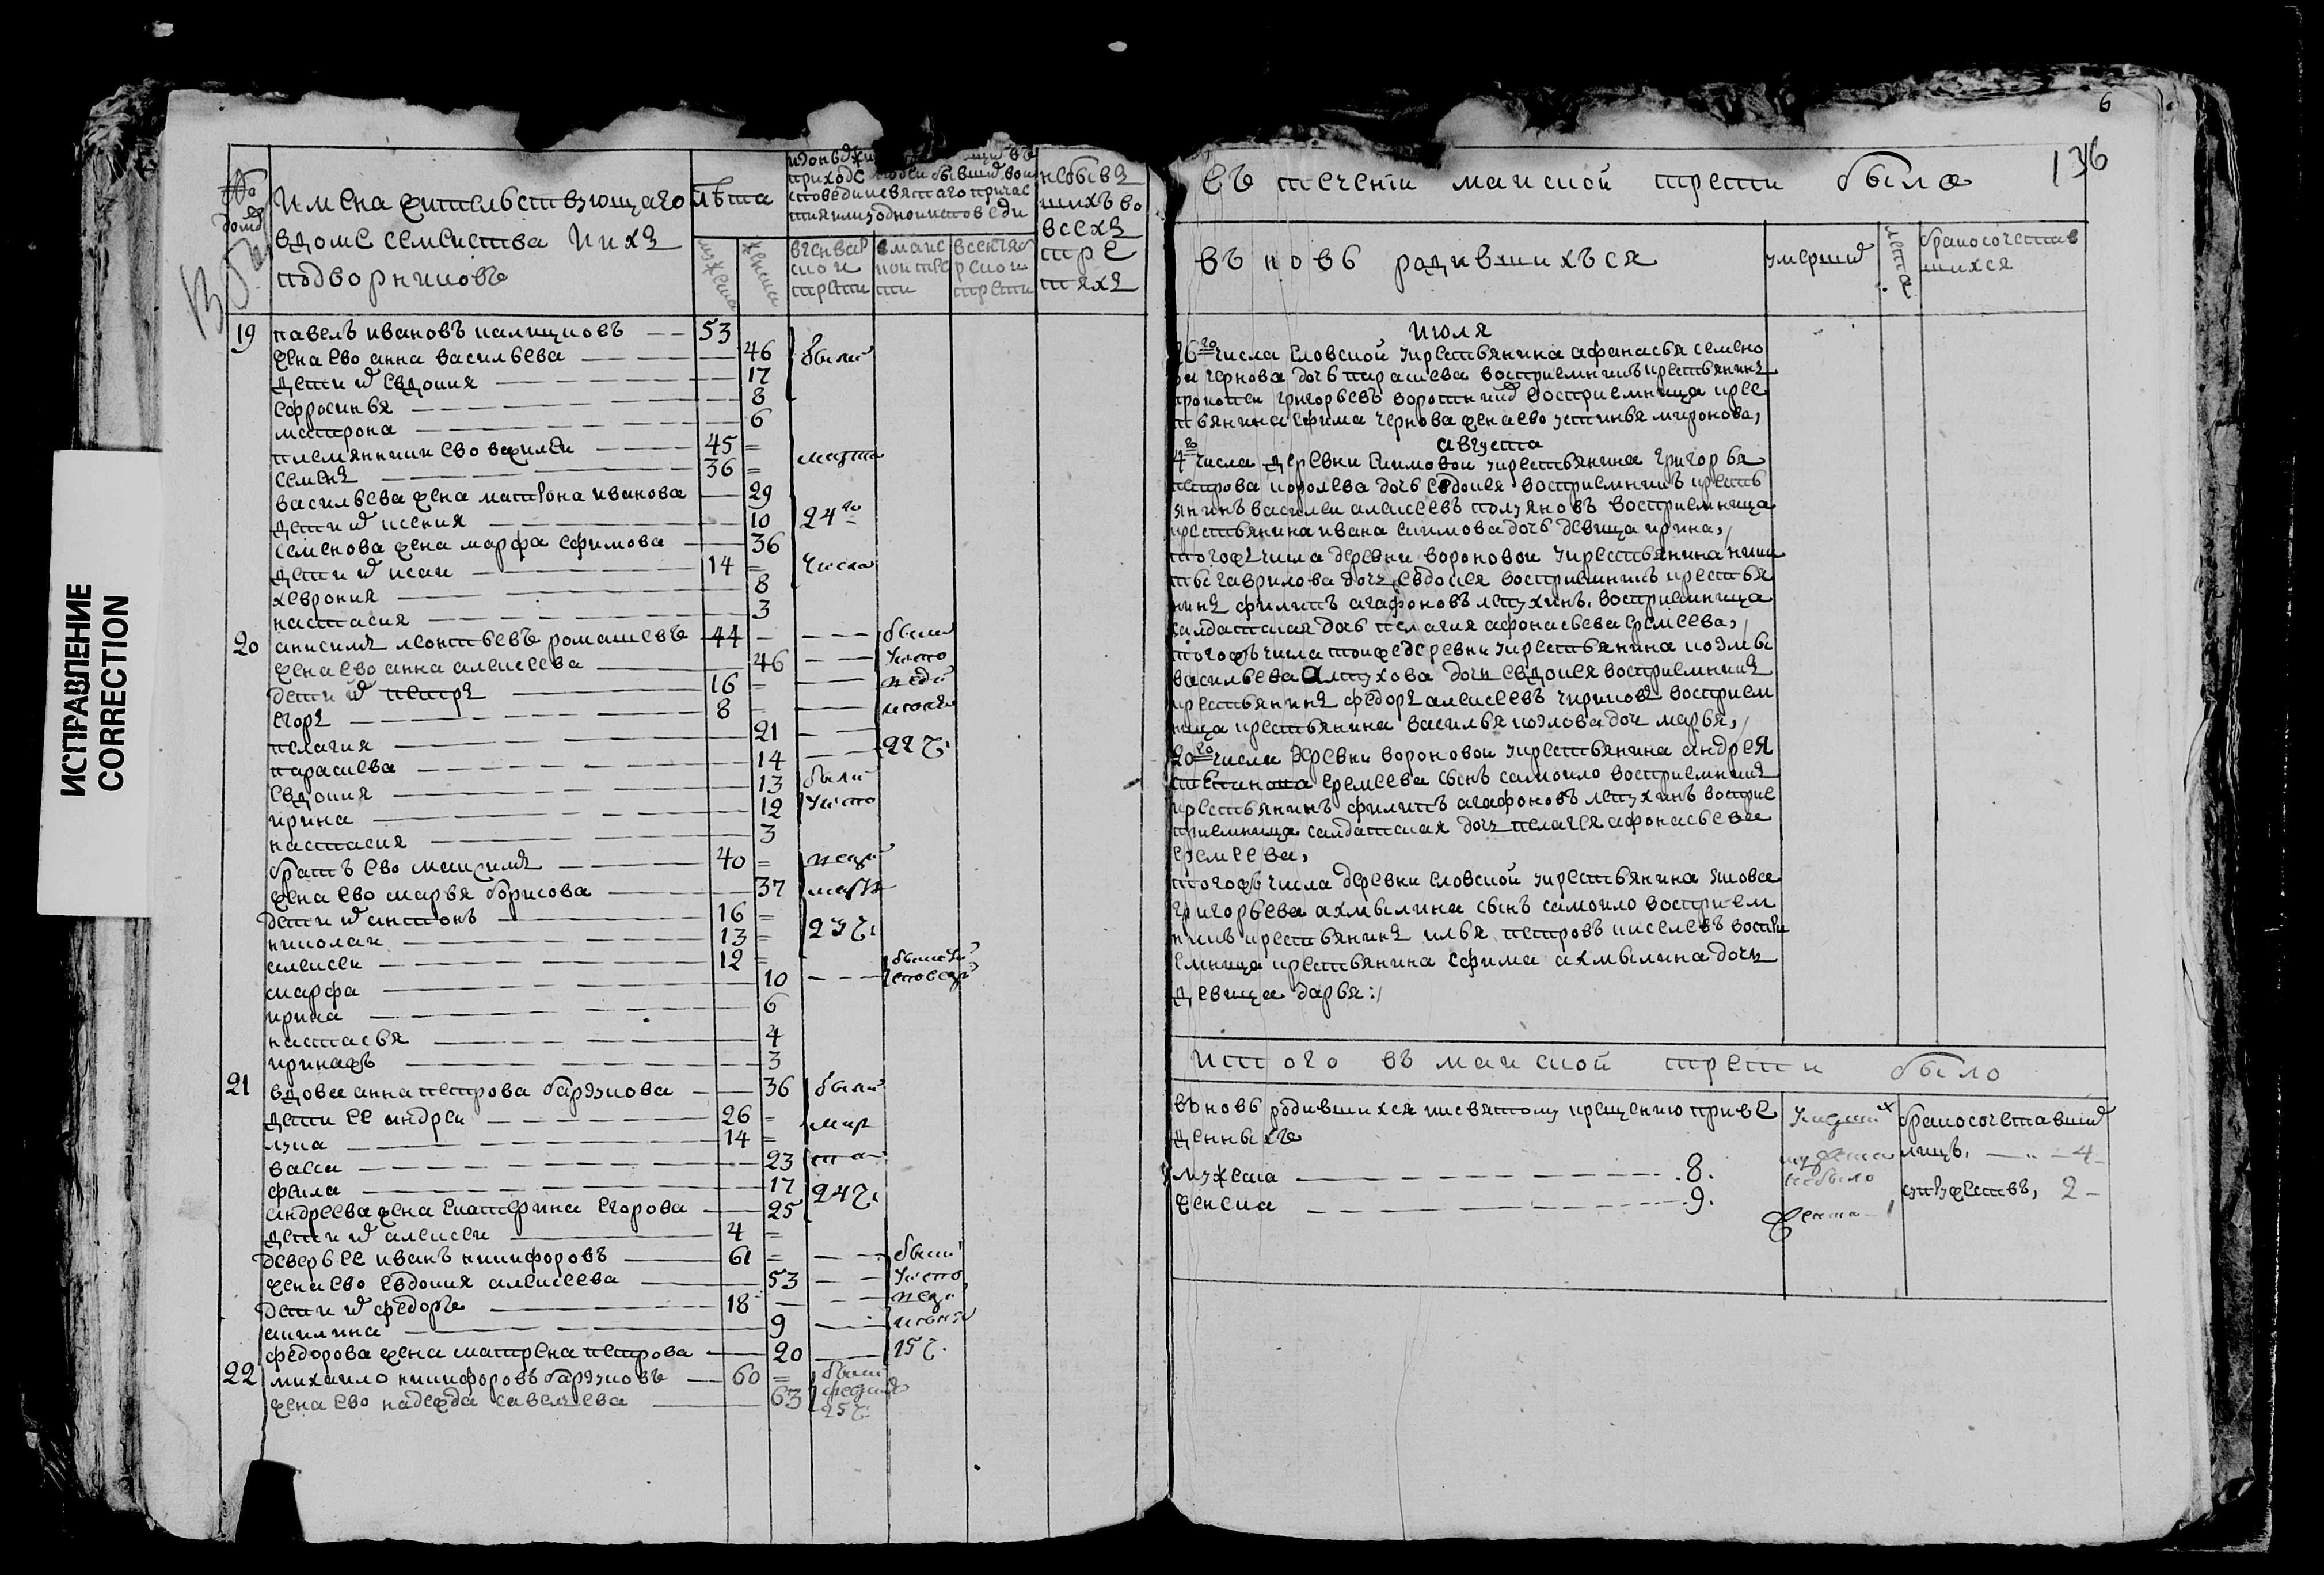 6
136
ИСПРАВЛЕНИЕ
CORRECTION
имена жителъствующаго
вдоме семейства иихъ
подворниковъ
лѣта
мужеска
женска
приходе
небывъ
шихъ во
всехъ
тре
тяхъ
вгенвар
ской
трети
вмайс
кой тре
ти
всентяб
рской
трети
19 павелъ ивановъ калищковъ 53
жена ево анна васильева 46 были
дети их евдокия 17
ефросинья 8
матрона 6
племянники ево василеи 45 =
семенъ 36 = марта
васильева жена матрона иванова 29
дети их ксения 10 24го
семенова жена марфа ефимова 36
дети их исаи 14 = числа
хеврония 8
настасия 3
20 анисимъ леонтьевъ ромашевъ 44 были
жена ево анна алексеева 46 уиспо
дети их петръ 16 = веди
егоръ 8 июня
пелагия 21
параскева 14 22 ч.
евдокия 13 были
ирина 12 уиспо
настасия 3
братъ ево максимъ 40 =
жена ево марья борисова 37 марта
дети их антонъ 16 =
николаи 13 = 23 ч.
алексеи 12 =
марфа 10
ирина 6
настасья 4
ирина жъ 3
21 вдова анна петрова барзукова 36 были
дети ее андреи 26 = мар
лука 14 =
васса 23 та
фекла 17 24 ч.
андреева жена екатерина егорова 25
дети их алексеи 4 =
деверь ее иванъ никифоровъ 61 = были
жена ево евдокия алексеева 53 уиспо
дети их федоръ 18 веди
акилина 9 июня
федорова жена матрена петрова 20 15 ч.
22 михаило никифоровъ барзуковъ 60 = были
жена ево надежда савельева 63
25 ч.
въ течени маиской трети было
въ новь родившихъся
умерших
лета
бракосочетав
шихся
июля
26го числа еловской укрестьянина афанасья семено
ва чернова дочь параскева восприемникъ крестьянинъ
прокопеи григорьевъ воротников восприемница крес
тьянина ефима чернова жена ево устинья миронова,
августа
4го числа деревни екимовои укрестьянина григорья
петрова королева дочь евдокея восприемникъ кресть
янинъ василеи алексеевъ полуяновъ восприемница
крестьянина ивана екимова дочь девица ирина,
тогожъ числа деревни вороновои укрестьянина ники
ты гаврилова дочь евдокея восприемникъ крестья
нинъ филипъ агафоновъ летухинъ восприемница
салдатская дочь пелагия афонасьева еремеева,
тогожъ числа тоиже деревни укрестьянина козмы
васильева алтухова дочь евдокея восприемникъ
крестьянинъ федоръ алексеевъ чириковъ восприем
ница крестьянина василья козлова доч марья,
20го числа деревни вороновои укрестьянина андрея
степинова еремеева сынъ самоило восприемникъ
крестьянинъ филипъ агафоновъ летухинъ восприе
приемница салдатская дочь пелагея афонасьева
еремеева,
тогожъ числа деревни еловской укрестьянина якова
григорьева ахмылина сынъ самоило восприем
никъ крестьянинъ илья петровъ киселевъ воспри
емница крестьянина ефима ахмылина дочь
девица дарья:/
итого въ маиской трети было
въновь родившихся исвятому крещению приве
денныхъ
мужеска 8.
женска 9.
умерших
мужеска
небыло
женска 1
бракосочетавших
лицъ, 4
супружествъ, 2